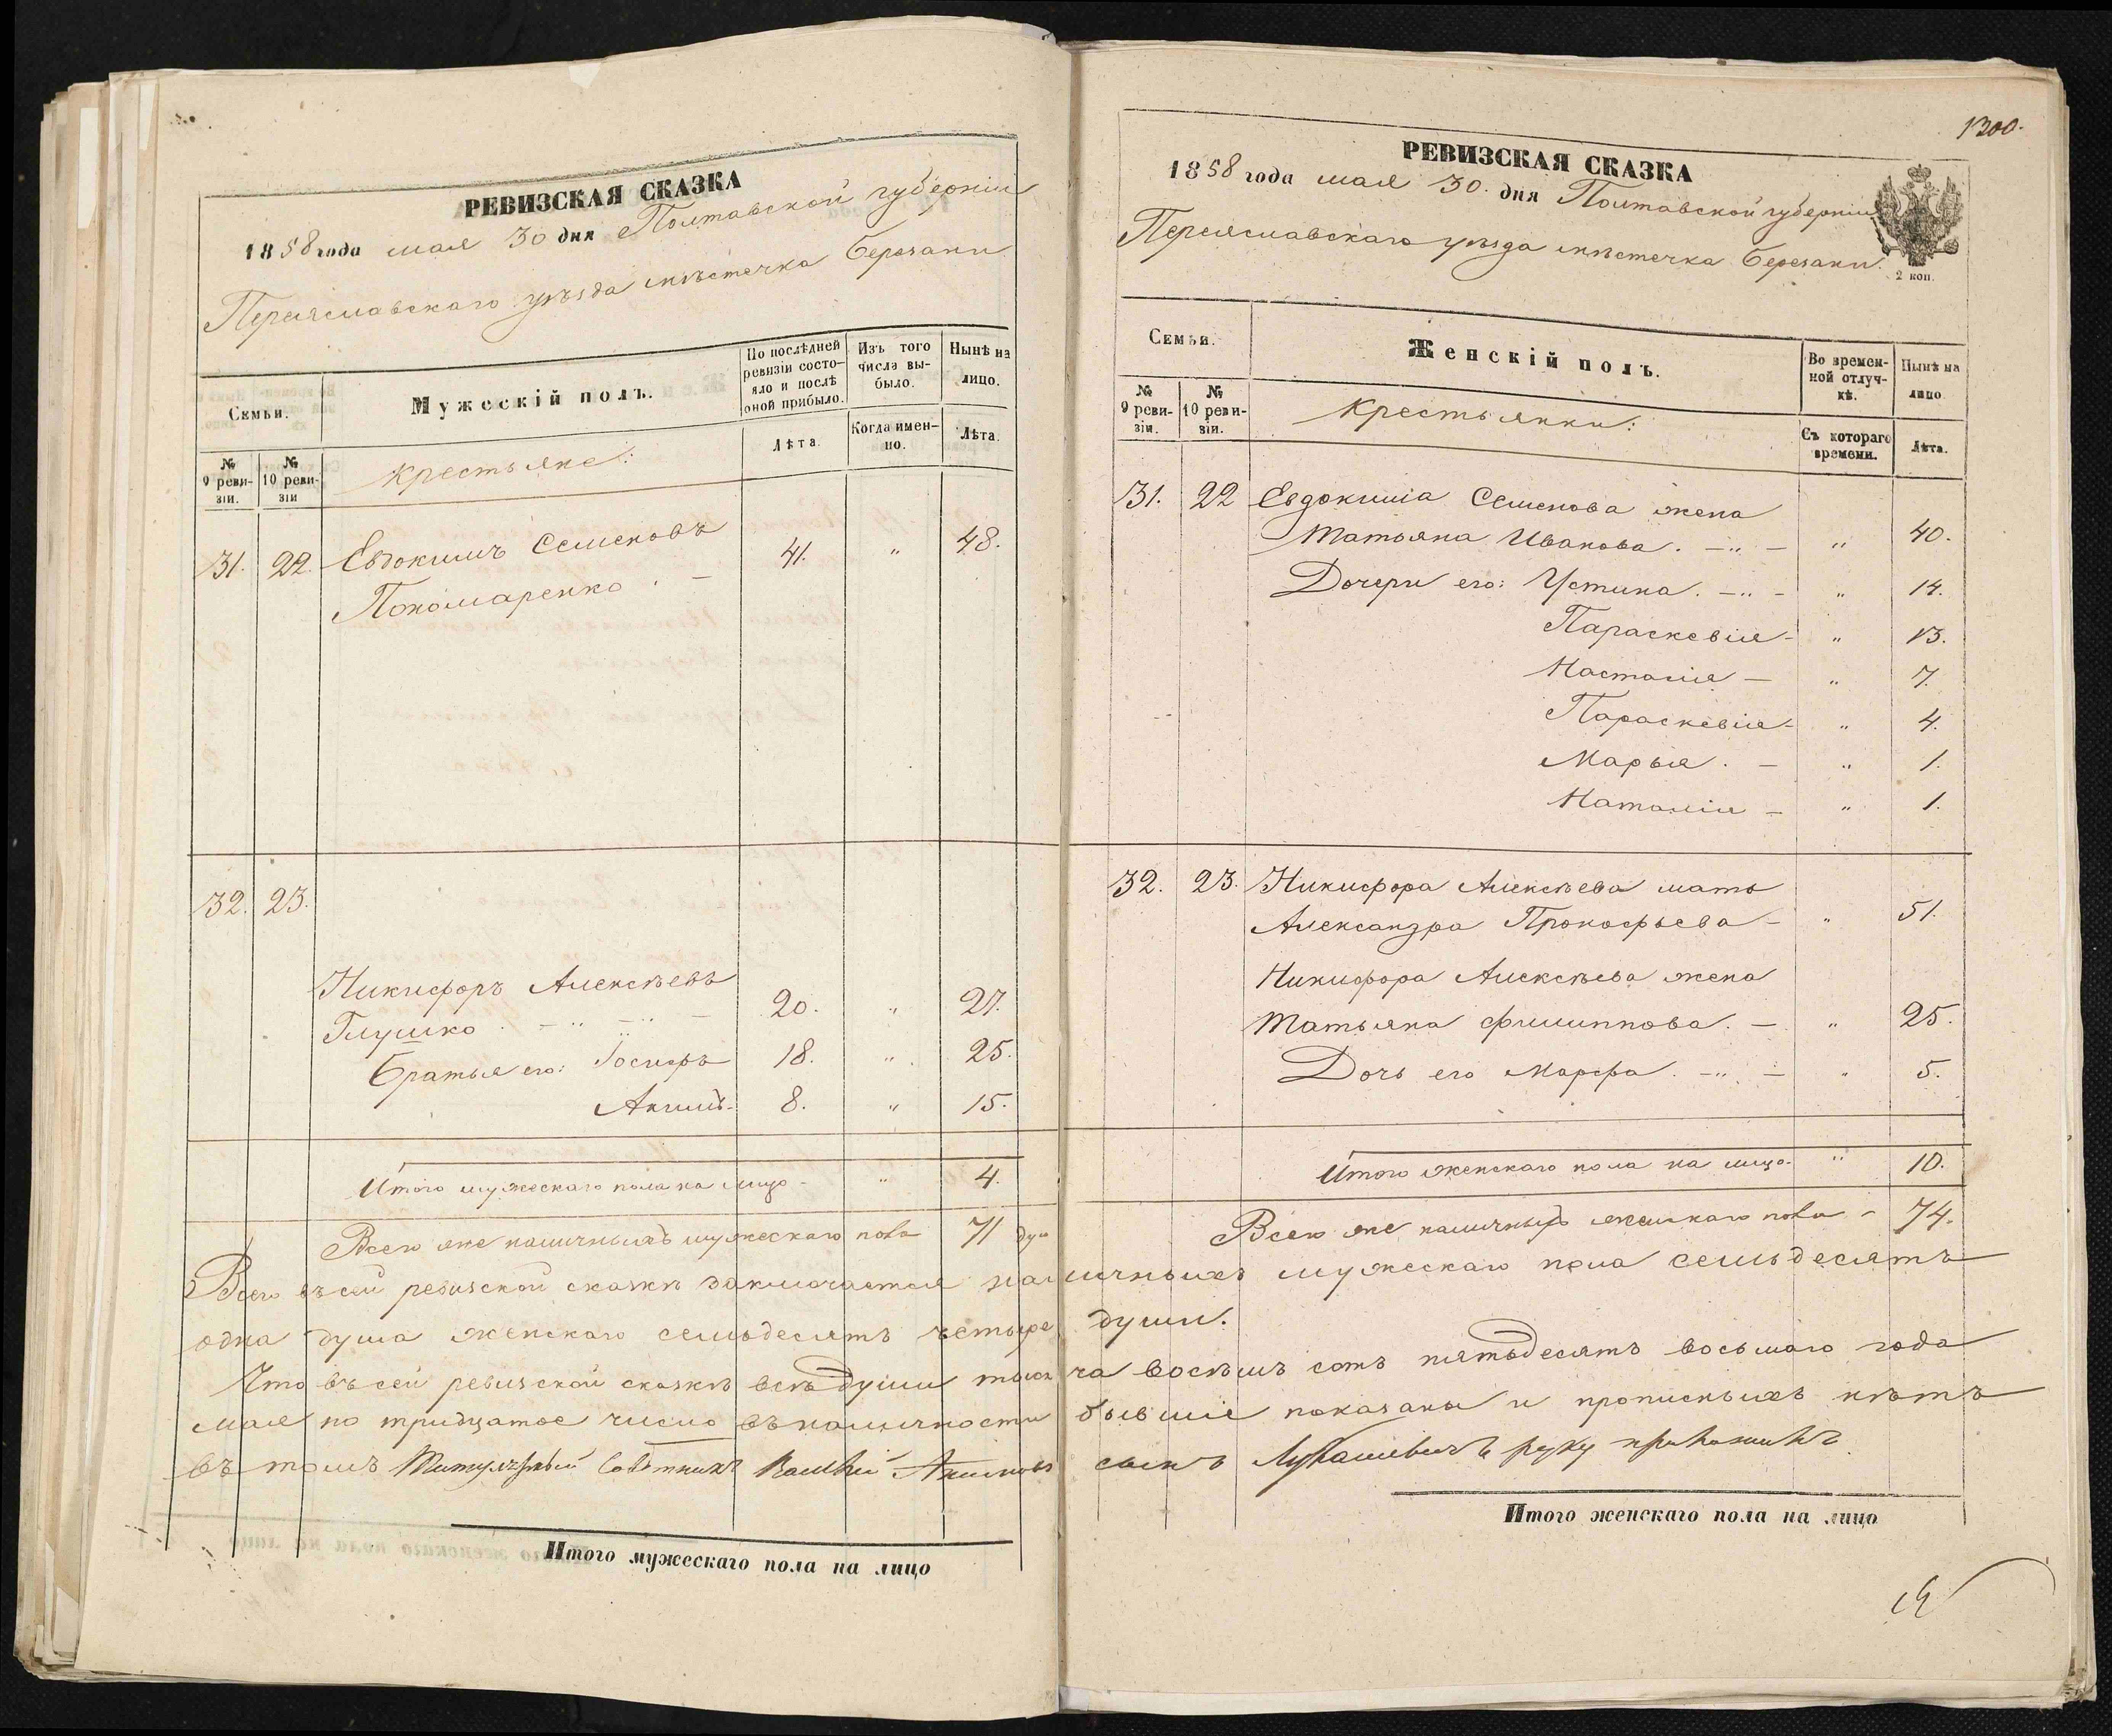 РЕВИЗСКАЯ СКАЗКА
1858 года мая 30 дня Полтавской губерніи
Переяславскаго уѣзда мѣстечка Березани
Семьи.
Мужескій полъ.
По послѣдней ревизіи состояло и послѣ оной прибыло.
Изъ того числа выбыло.
Нынѣ на лицо.
№ 9 ревизіи.
№ 10 ревизіи
крестьяне:
Лѣта.
Когда именно.
Лѣта.
31. 22. Евдокимъ Семеновъ 41. " 48.
Пономаренко . –
32. 23.
Никифоръ Алексѣевъ 20. " 27.
Глушко . – " – " –
Братья его: Іосифъ 18. " 25.
Акимъ – 8. " 15.
Итого мужескаго пола на лицо – " 4.
Всего же наличныхъ мужескаго пола 71 душ
1300.
РЕВИЗСКАЯ СКАЗКА
1858 года мая 30. дня Полтавской губерніи
Переяславскаго уѣзда мѣстечка Березани.
2 коп.
Семьи.
Женскій полъ.
Во временной отлучкѣ.
Нынѣ на лицо
№ 9 ревизіи.
№ 10 ревизіи.
крестьянки:
Съ котораго времени.
Лѣта.
31. 22 Евдокима Семенова жена
Татьяна Иванова. – " – " 40.
Дочери его: Устина. – " – " 14.
Параскевія – " 13.
Настасія – " 7.
Параскевія – " 4.
Марья . – " 1.
Наталія – " 1.
32. 23. Никифора Алексѣева мать
Александра Прокофьева – " 51.
Никифора Алексѣева жена
Татьяна Филиппова. – " 25.
Дочь его Марфа. – " – " 5.
Итого женскаго пола на лицо – " 10.
Всего же наличныхъ женскаго пола – 74.
Всего въ сей ревизской сказкѣ заключается наличныхъ мужескаго пола семьдесятъ
одна душа женскаго семьдесятъ четыре души.
Что въ сей ревизской сказкѣ всѣ души тысяча восѣмъ сотъ пятьдесятъ восьмаго года
мая по тридцатое число въ наличности бывшіе показаны и прописныхъ нѣтъ
въ томъ Титулярный Совѣтникъ Акимовъ сынъ Лукашевичъ руку приложилъ
Итого мужескаго пола на лицо
Итого женскаго пола на лицо